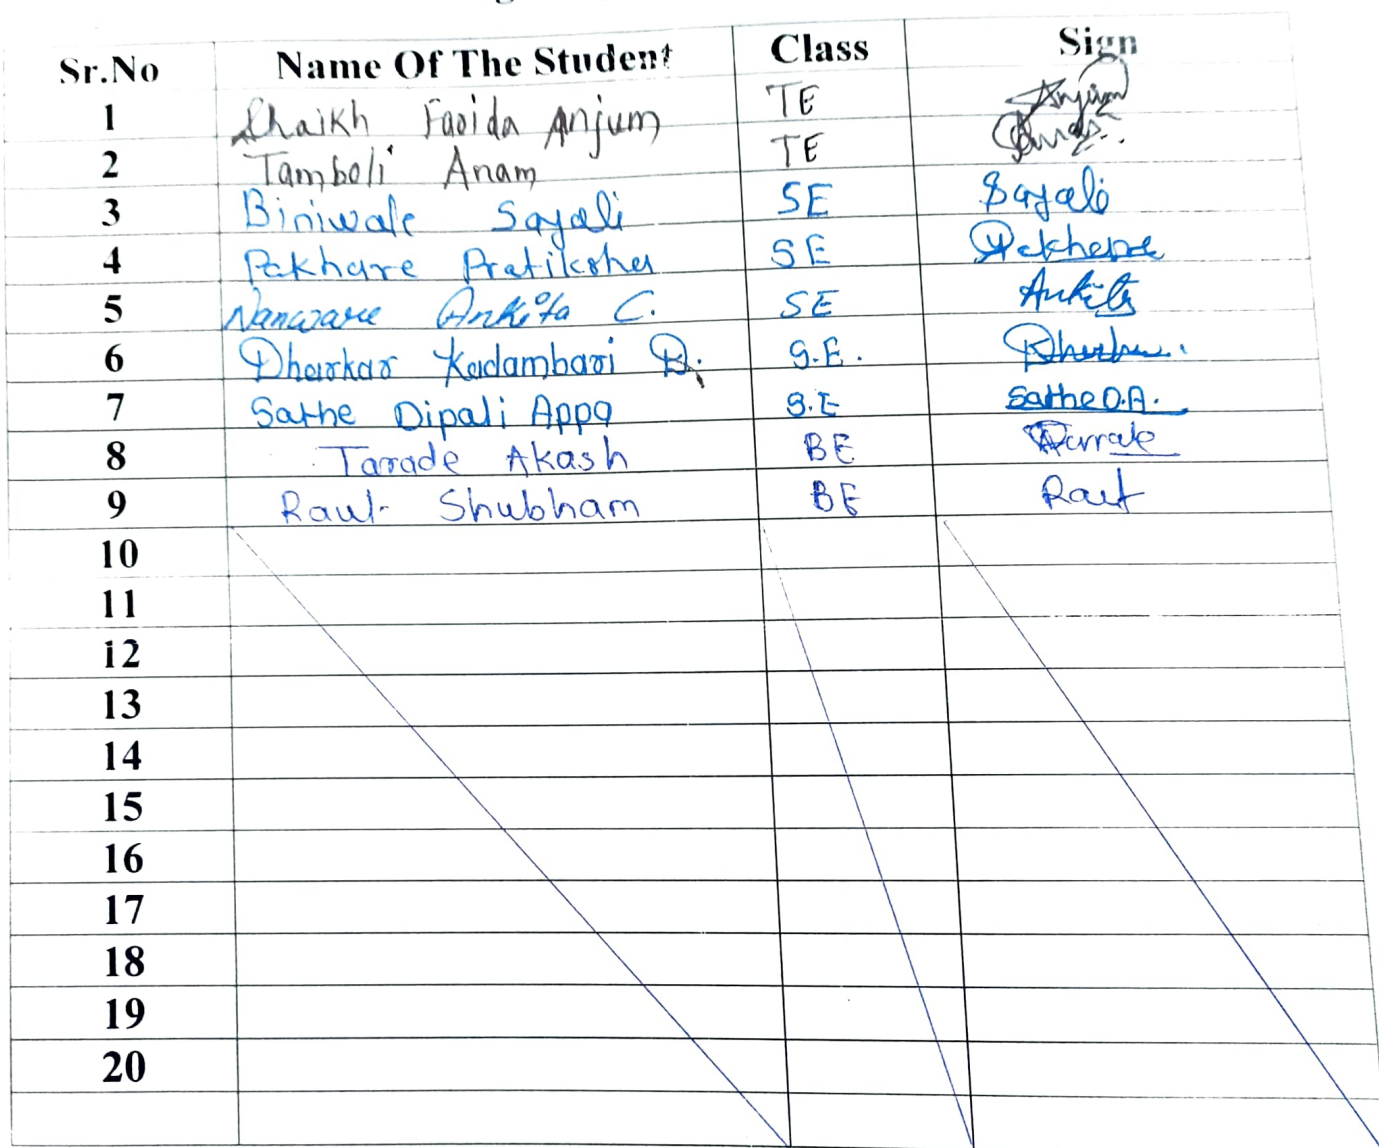 Sr.No Name Of The Student Class Sign
1 Shaikh Farida Anjum TE Anjum
2 Tamboli Anam TE
3 Biniwale Sayali SE Sayali
4 Pakhare Pratiksha SE Pakhare
5 Nanware Ankita C. SE Ankita
6 Dharkar Kadambari D. S.E.
7 Sathe Dipali Appa S.E Sathe D.A.
8 Tarade Akash BE
9 Raut Shubham BE Raut
10
11
12
13
14
15
16
17
18
19
20